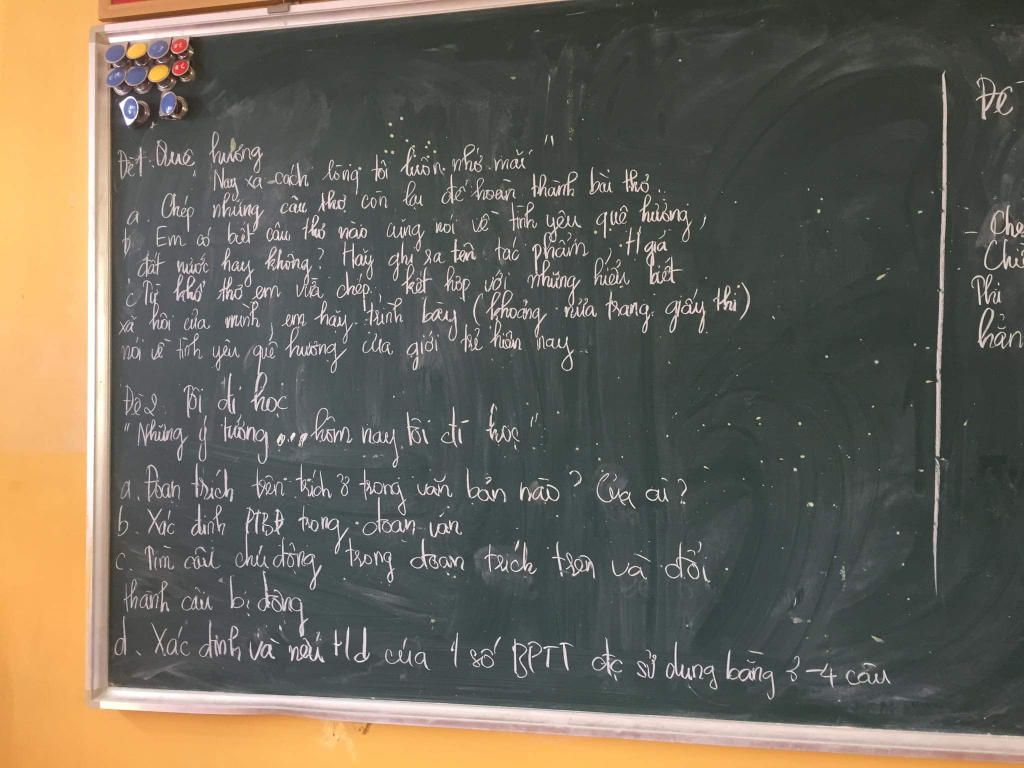 Đề 1. Quê hương
Nay xa cách lòng tôi luôn nhớ mãi"
a. Chép những câu thơ còn lại để hoàn thành bài thơ..
b. Em có biết câu thơ nào cũng nói về tình yêu quê hương,
đất nước hay không? Hãy ghi ra tên tác phẩm, t/giả
c. Từ khổ thơ em vừa chép, kết hợp với những hiểu biết
xã hội của mình, em hãy trình bày (khoảng nửa trang giấy thi)
nói về tình yêu quê hương của giới trẻ hiện nay
Đề 2. Tôi đi học
"Những ý tưởng ... hôm nay tôi đi học"
a. Đoạn trích trên trích ở trong văn bản nào? Của ai?
b. Xác định PTBĐ trong đoạn văn
c. Tìm câu chủ động trong đoạn trích trên và đổi
thành câu bị động
d. Xác định và nêu t/d của 1 số BPTT đc sử dụng bằng 3-4 câu
Đề
- Che
Chi
Phi
hằn